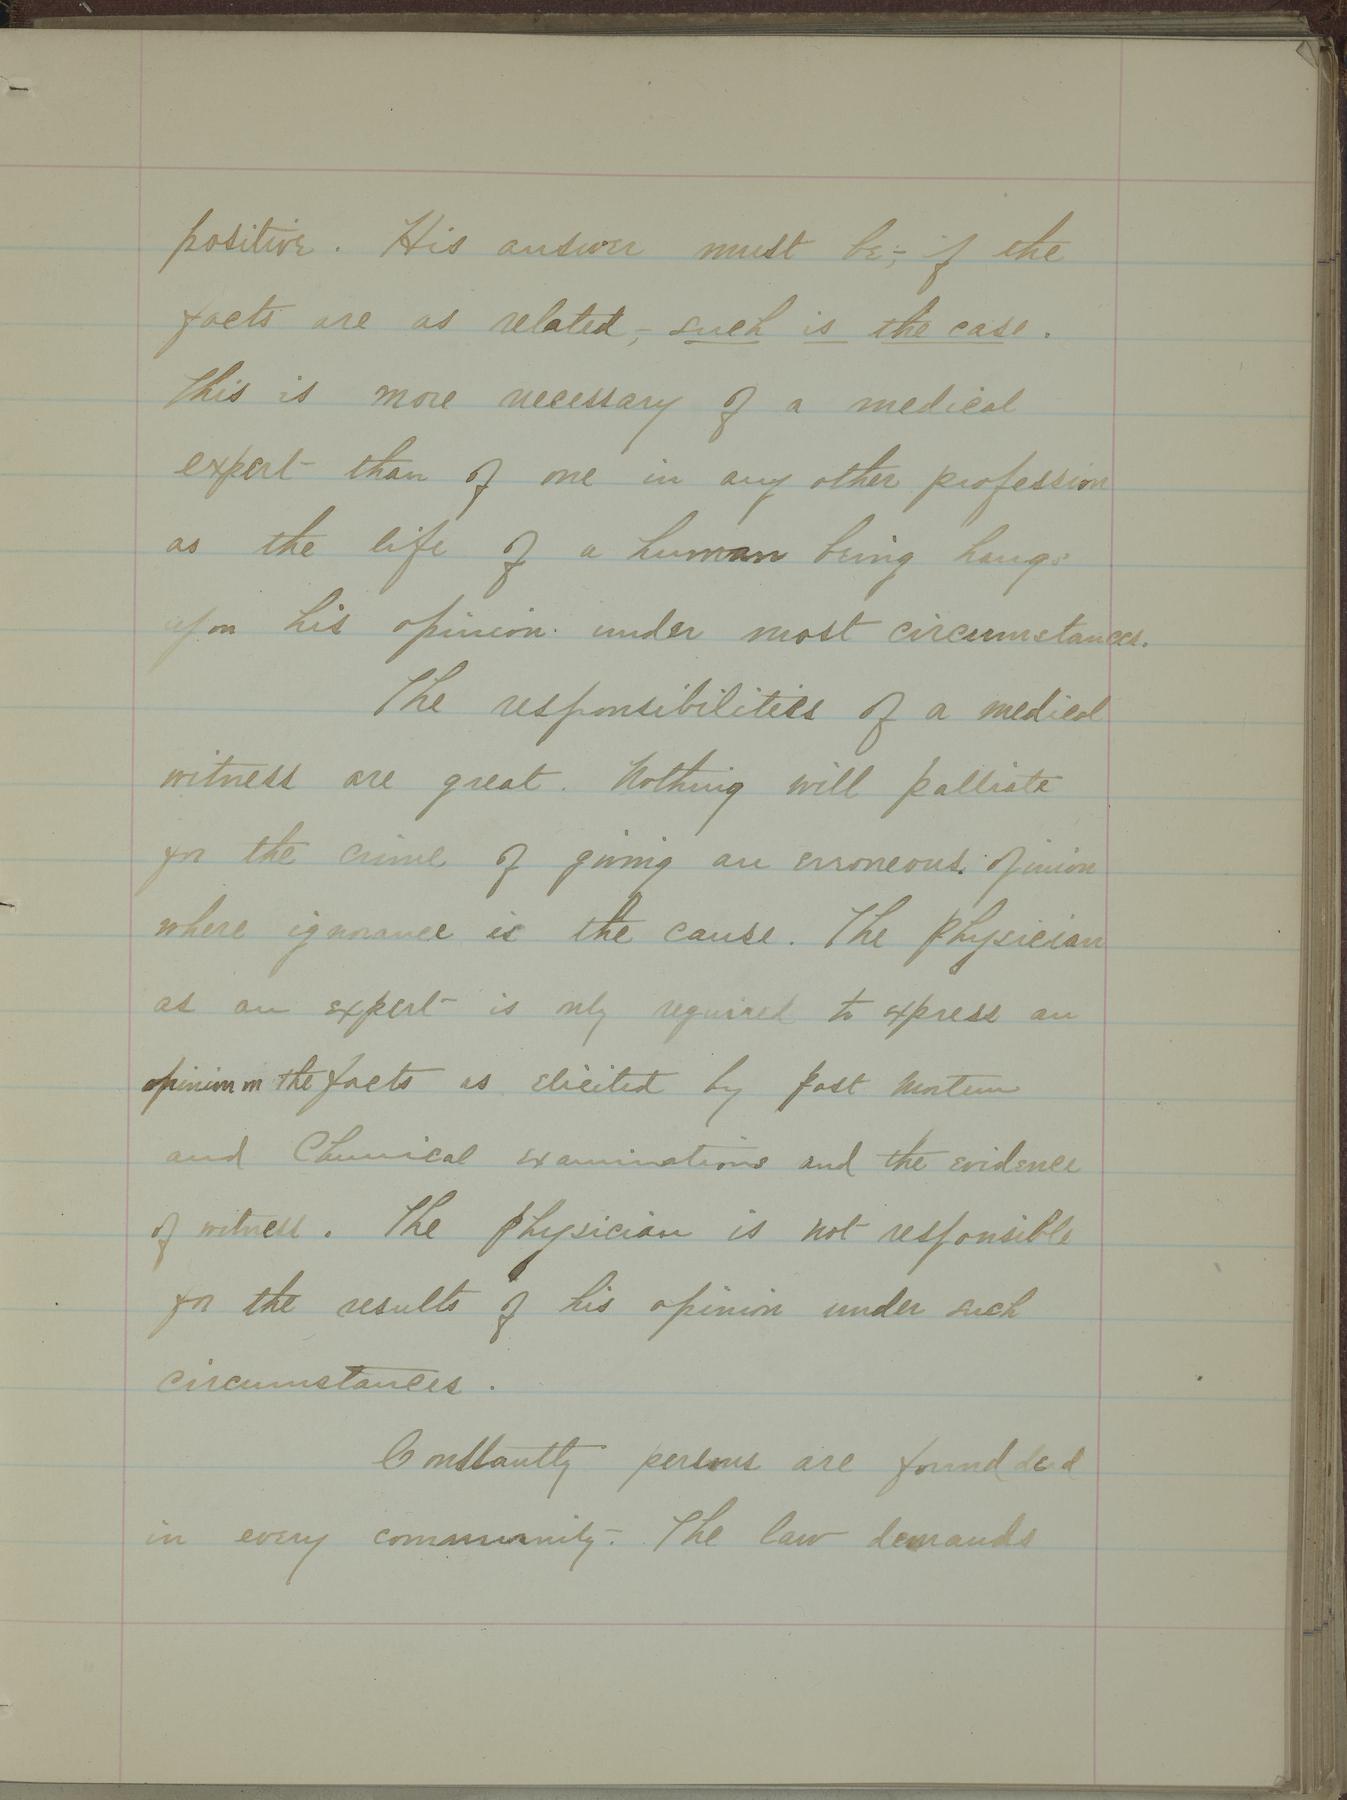 positive. His answer must be;- if the
facts are as related,- such is the case.
This is more necessary of a medical
expert than of one in any other profession
as the life of a human being hangs
upon his opinion under most circumstances.
The responsibilities of a medical
witness are great. Nothing will palliate
for the crime of giving an erroneous opinion
where ignorance is the cause. The Physician
as an expert is only required to express an
opinion on the facts as elicited by Post Mortem
and Chemical examinations and the evidence
of witness. The Physician is not responsible
for the results of his opinion under such
circumstances.
Constantly persons are found dead
in every community. The law demands